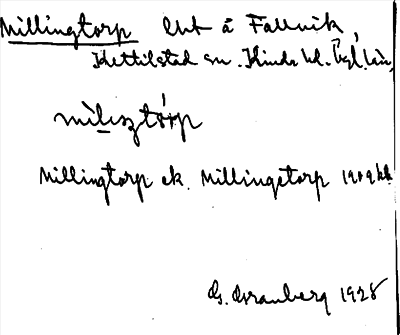 Millingtorp lht å Fallvik,
Kettilstad sn. Kinda hd. Ögl. län,
milɩsztórp
Millingtorp ek. Millingetorp 1909 kb
G. Granberg 1928